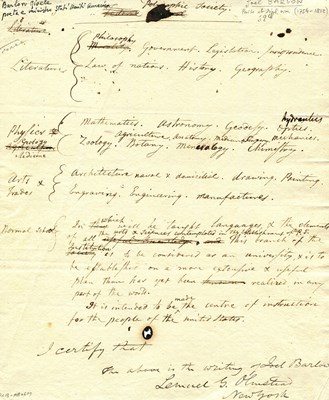 Barlow Joel
poete & ministre Etats Unis
Joel BARLOW
(1754-1812)
Polosophic Society.
Literature
Philosophy
Literature { Morality, Government. Legislation. Jurisprudence
Law of nations. History. Geography.
Mathematics. Astronomy. Geodesy. Optics. hydraulics
Physics & agriculture, anatomy, mechanics.
Geology Zoology. Botany. Mineralogy. Chimistry.
Medicine
Arts & Architecture naval & domestick. drawing. Painting.
Trades Engraving. Engineering. manufactures.
Normal School In which will be taught Languages, & the elements
of all the arts & sciences contemplated in this branch of the
Institution
is to be considered as an university, & is to
be established on a more extensive & useful
plan than has yet been realized in any
part of the world.
It is intended to be made the centre of instruction
for the people of the united States.
I certify that
The above is the writing of Joel Barlow
Lemuel G. Olmstead
New York